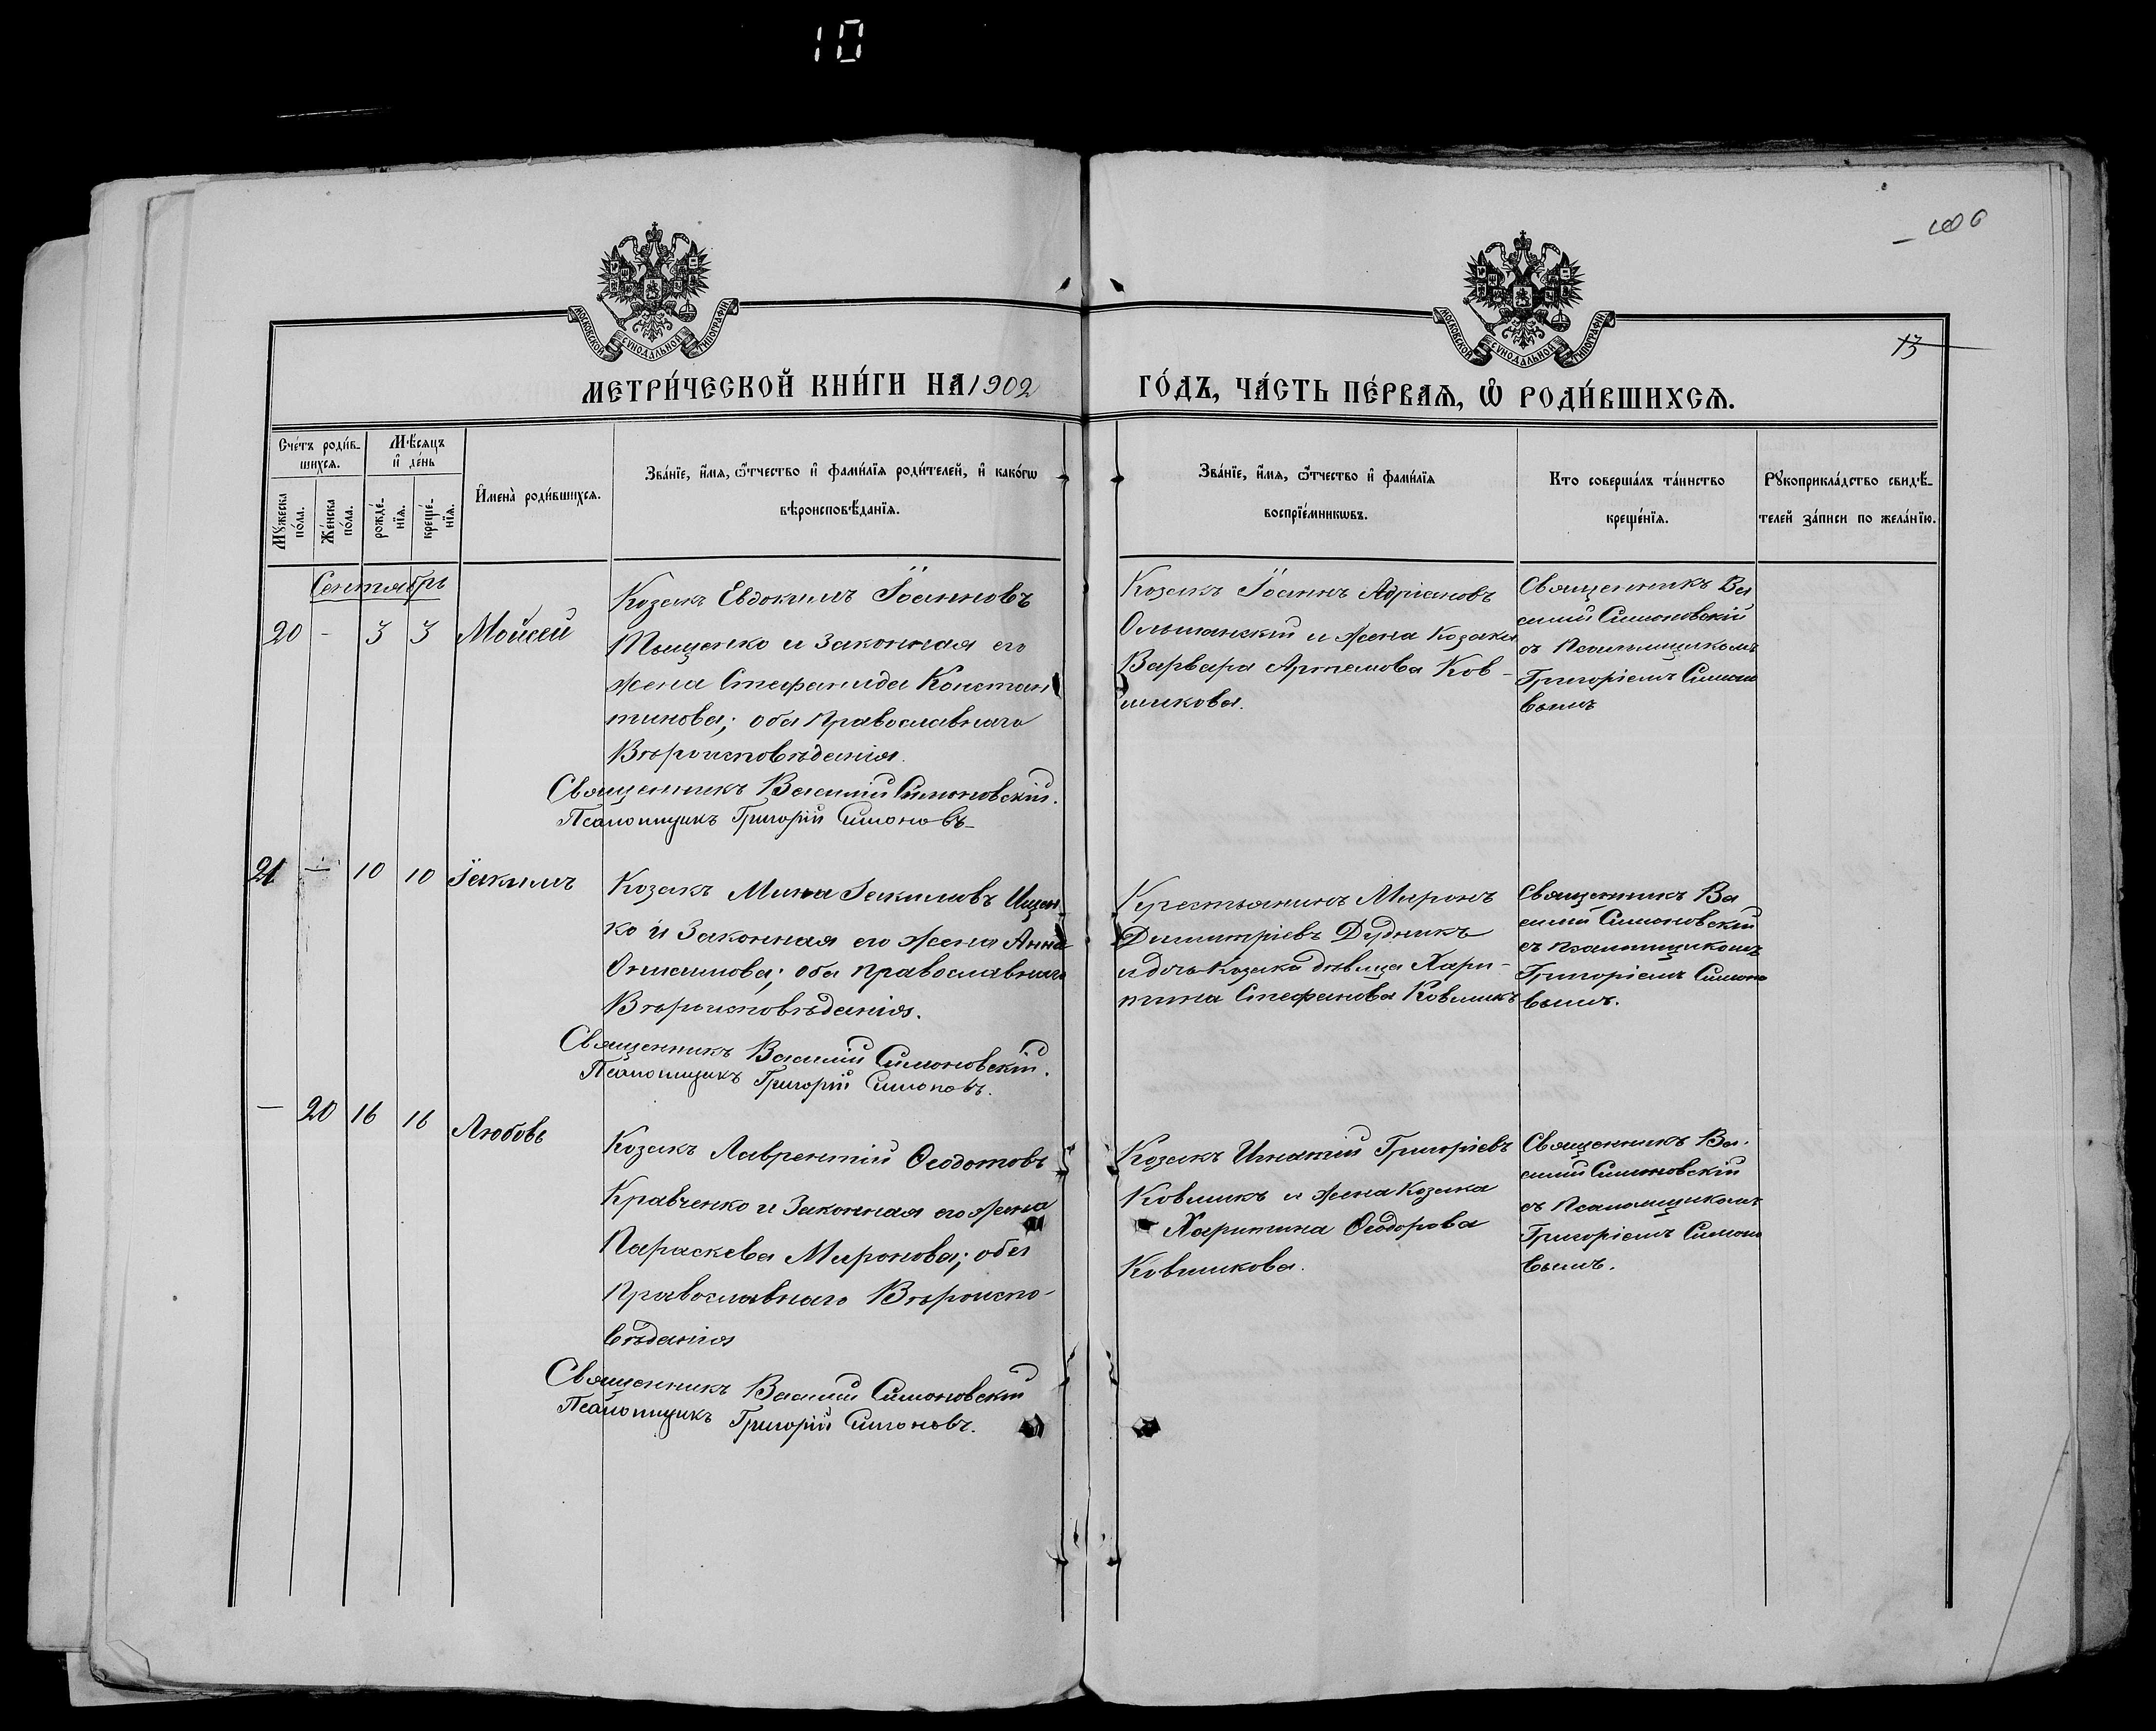 10
106
13
МОСКОВСКОЙ СѴНОДАЛЬНОЙ ТИПОГРАФІИ
МОСКОВСКОЙ СѴНОДАЛЬНОЙ ТИПОГРАФІИ
МЕТРИ́ЧЕСКОЙ КНИ́ГИ НА 1902 ГО́ДЪ, ЧА́СТЬ ПЕ́РВАѦ, Ѡ҆ РОДИ́ВШИХСѦ.
Сче́тъ роди́в-
шихсѧ.
Мꙋ́жеска
по́ла.
Же́нска
по́ла.
Мѣ́сѧцъ
и҆ де́нь
рожде́-
нїѧ.
креще́-
нїѧ.
И҆мена̀ роди́вшихсѧ.
Зва́нїе, и҆́мѧ, ѻ҆́тчество и҆ фами́лїѧ роди́телей, и҆ како́гѡ
вѣроисповѣ́данїѧ.
Зва́нїе, и҆́мѧ, ѻ҆́тчество и҆ фами́лїѧ
воспрїе́мникѡвъ.
Кто соверша́лъ та́инство
креще́нїѧ.
Рꙋкоприкла́дство свидѣ́-
телей за́писи по жела́нїю.
Сентябрь
20 - 3 3 Мойсей
Козакъ Евдокимъ Іоанновъ
Тыщенко и законная его
жена Стефанида Констан
тинова; оба православнаго
Вѣроисповѣданія.
Священникъ Василій Симоновскій.
Псаломщикъ Григорій Симоновъ
Козакъ Іоаннъ Адріановъ
Ольшанскій и жена козака
Варвара Артемова Ков-
шикова.
Священникъ Ва
силій Симоновскій
съ Псаломщикомъ
Григоріемъ Симоно
вымъ
21 - 10 10 Іакимъ
Козакъ Мина Іакимовъ Ищен
ко и законная его жена Анна
Онисимова; оба православнаго
Вѣроисповѣданія.
Священникъ Василій Симоновскій.
Псаломщикъ Григорій Симоновъ.
Крестьянинъ Миронъ
Димитріевъ Дудникъ
и дочь козака дѣвица Хари-
тина Стефанова Ковшикъ
Священникъ Ва
силій Симоновскій
съ псаломщикомъ
Григоріемъ Симоно
вымъ.
- 20 16 16 Любовь
Козакъ Лаврентій Ѳеодотовъ
Кравченко и законная его жена
Параскева Миронова; оба
Православнаго Вѣроиспо-
вѣданія
Священникъ Василій Симоновскій
Псаломщикъ Григорій Симоновъ.
Козакъ Игнатій Григоріевъ
Ковшикъ и жена козака
Харитина Ѳеодорова
Ковшикова.
Священникъ Ва-
силій Симоновскій
съ Псаломщикомъ
Григоріемъ Симоно
вымъ.